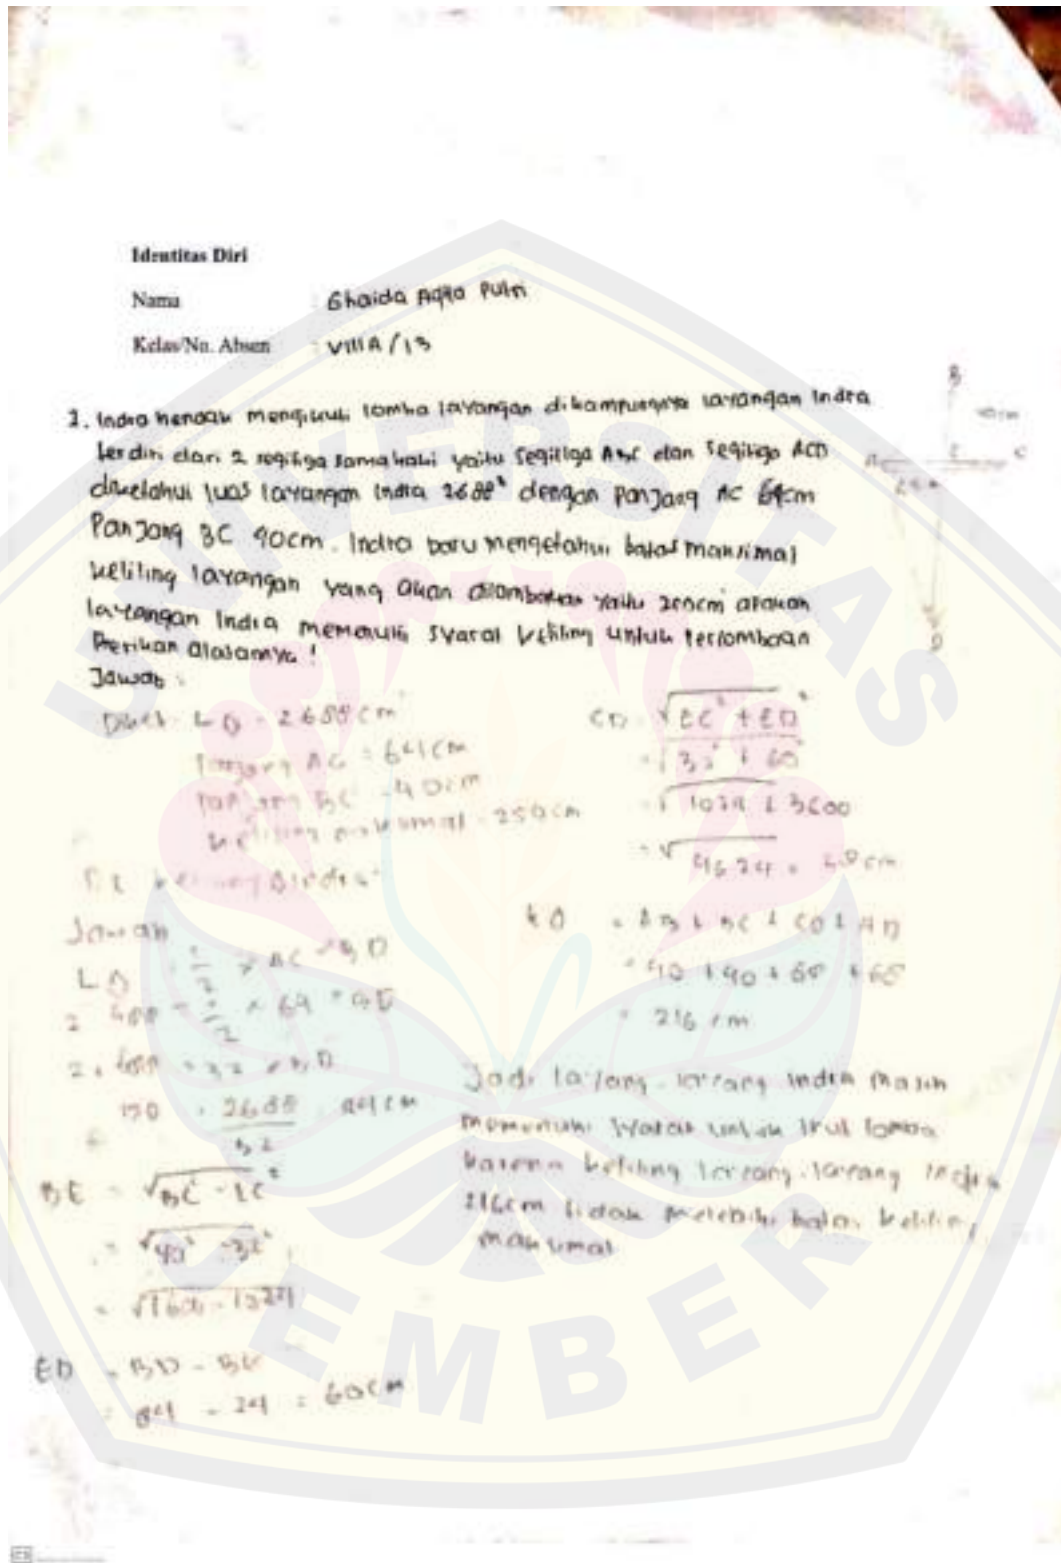 Identitas Diri
Nama : Ghaida Aqila Putri
Kelas/No. Absen : VIII A / 13
2. Indra hendak mengikuti lomba layangan dikampungnya layangan Indra
terdiri dari 2 segitiga samakaki yaitu segitiga ABC dan segitiga ACD
diketahui luas layangan Indra 2688² dengan panjang AC 64cm
Panjang BC 40cm. Indra baru mengetahui batas maksimal
keliling layangan yang akan dilombakan yaitu 250cm apakah
layangan Indra memenuhi syarat keliling untuk perlombaan
Berikan alasannya!
B
40cm
A E C
D
Jawab :
Diket L = 2688 cm
Panjang AC = 64 cm
panjang BC = 40 cm
keliling maksimal = 250 cm
Jawab
L = 1/2 × AC × BD
2688 = 1/2 × 64 × BD
2688 = 32 × BD
BD = 2688/32 = 84 cm
BE = √BC² - EC²
= √40² - 32²
= √1600 - 1024
ED = BD - BE
= 84 - 24 = 60 cm
CD = √EC² + ED²
= √32² + 60²
= √1024 + 3600
= √4624 = 68 cm
K = AB + BC + CD + AD
= 40 + 40 + 68 + 68
= 216 cm
Jadi layang-layang Indra masih
memenuhi syarat untuk ikut lomba
karena keliling layang-layang Indra
216cm tidak melebihi batas keliling
maksimal
UNIVERSITAS
JEMBER